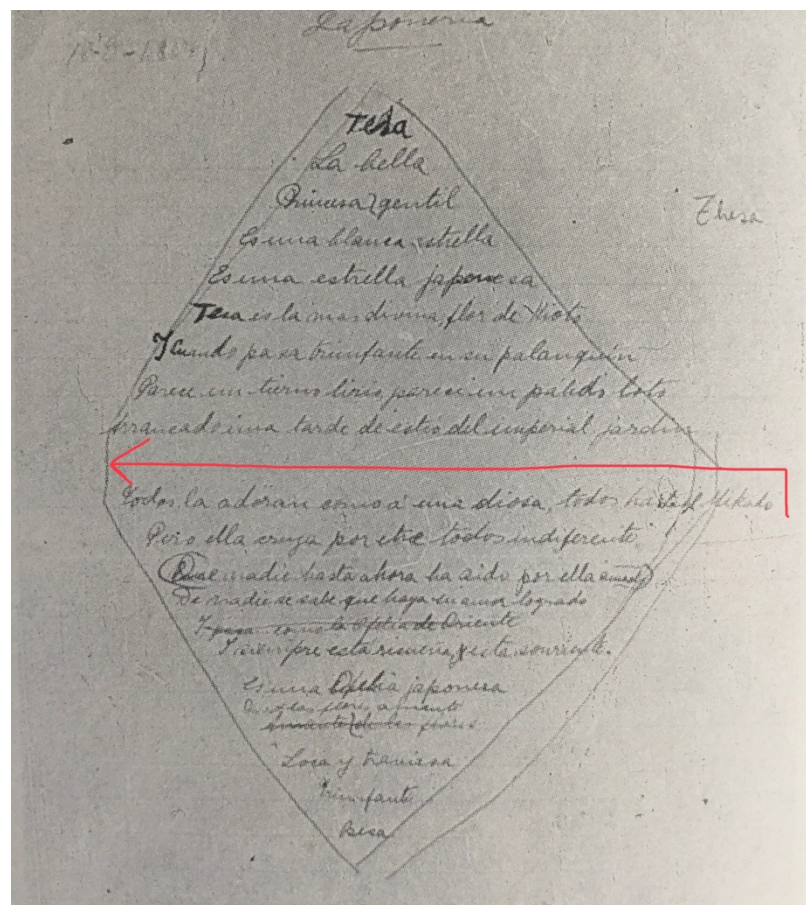 Japoneria
Tesa
La bella
Princesa gentil
Es una blanca estrella
Thesa
Es una estrella japonesa
Tesa es la mas divina, flor de Kioto
Y Cuando pasa triunfante en su palanquin
Parece un tierno lirio, parece un palido loto
arrancado una tarde de estio del imperial jardin
Todos la adoran como a una diosa, todos hasta el Mikado
Pero ella cruza por entre todos indiferente
nadie hasta ahora ha sido por ella amado
De nadie se sabe que haya su amor logrado
Y pasa como la Ofelia de Oriente
Y siempre esta risueña, y esta sonriente.
Es una Ofelia japonesa
las flores amante
amante de las flores
Loca y traviesa
Triunfante
Besa